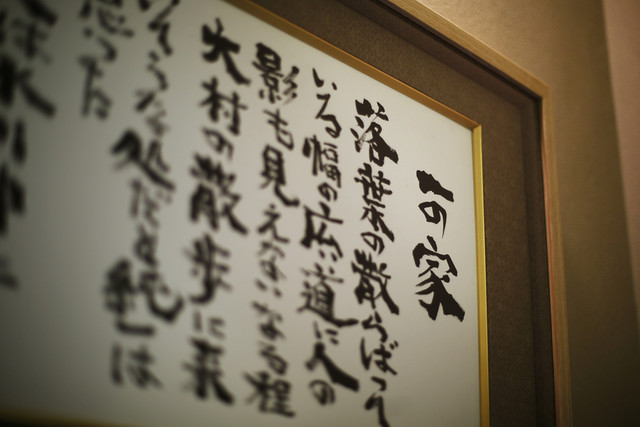 一の家
落葉の散らばつて
いる幅の広い道に人の
影も見えない、なる程
大村の散歩に来
そうな処だと純一は
思った